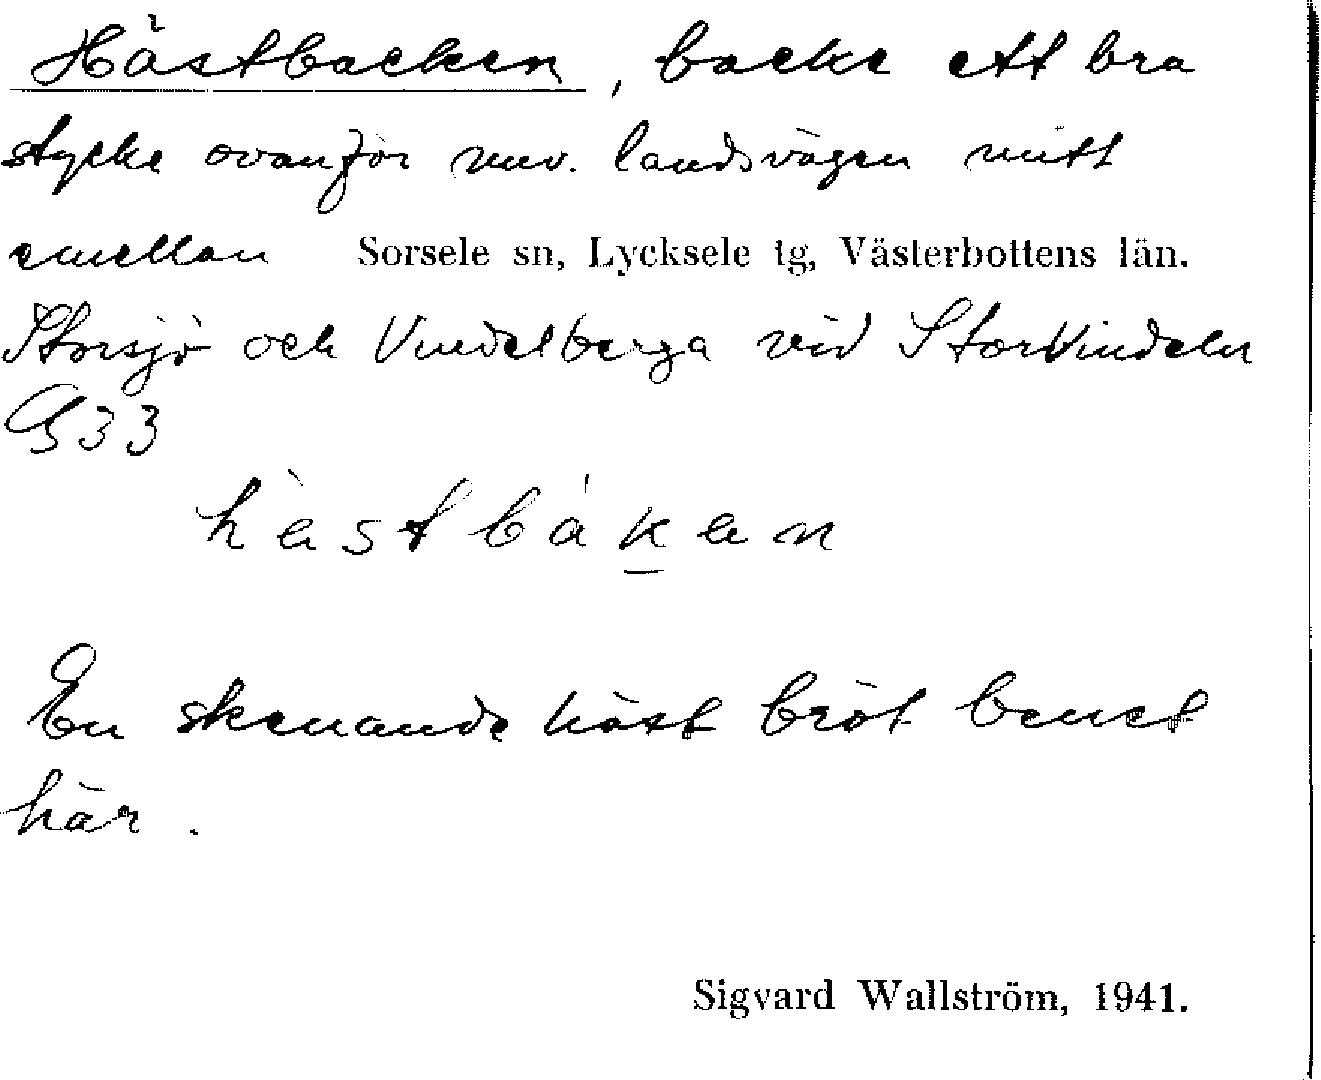 Hästbacken, backe ett bra
stycke ovanför nuv. landsvägen mitt
emellan Sorsele sn, Lycksele tg, Västerbottens län.
Storsjö och Vindelberga vid Storvindeln
G33
hèstbákan
En skenande häst bröt benet
här.
Sigvard Wallström, 1941.